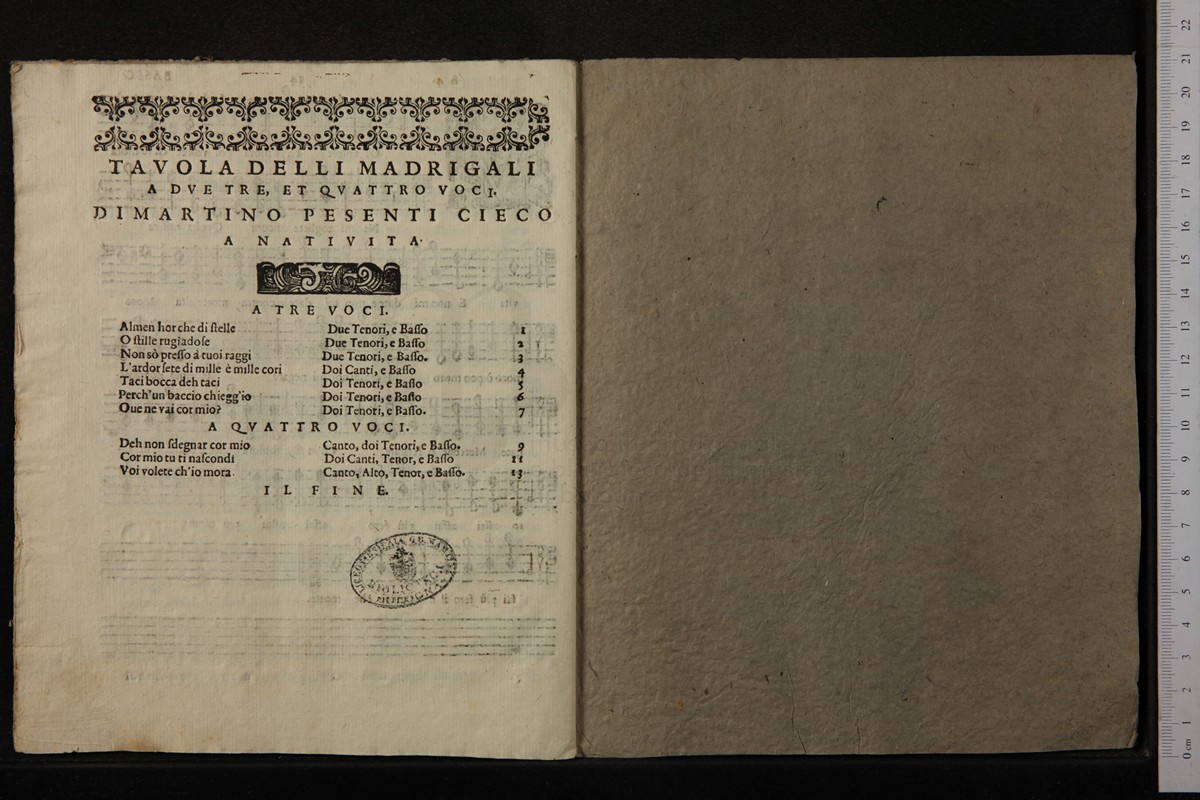 TAVOLA DELLI MADRIGALI
A DVE TRE, ET QVATTRO VOCI.
DI MARTINO PESENTI CIECO
A NATIVITA.
A TRE VOCI.
Almen hor che di ſtelle Due Tenori, e Baſſo 1
O ſtille rugiadoſe Due Tenori, e Baſſo 2
Non sò preſſo á tuoi raggi Due Tenori, e Baſſo. 3
L'ardor ſete di mille è mille cori Doi Canti, e Baſſo 4
Taci bocca deh taci Doi Tenori, e Baſſo 5
Perch'un baccio chiegg'io Doi Tenori, e Baſſo 6
Oue ne vai cor mio? Doi Tenori, e Baſſo. 7
A QVATTRO VOCI.
Deh non ſdegnar cor mio Canto, doi Tenori, e Baſſo. 9
Cor mio tu ti naſcondi Doi Canti, Tenor, e Baſſo 11
Voi volete ch'io mora. Canto, Alto, Tenor, e Baſſo. 13
IL FINE.
LICEO MUSICALE G.B. MARTINI
BIBLIOTECA
0 cm 1 2 3 4 5 6 7 8 9 10 11 12 13 14 15 16 17 18 19 20 21 22